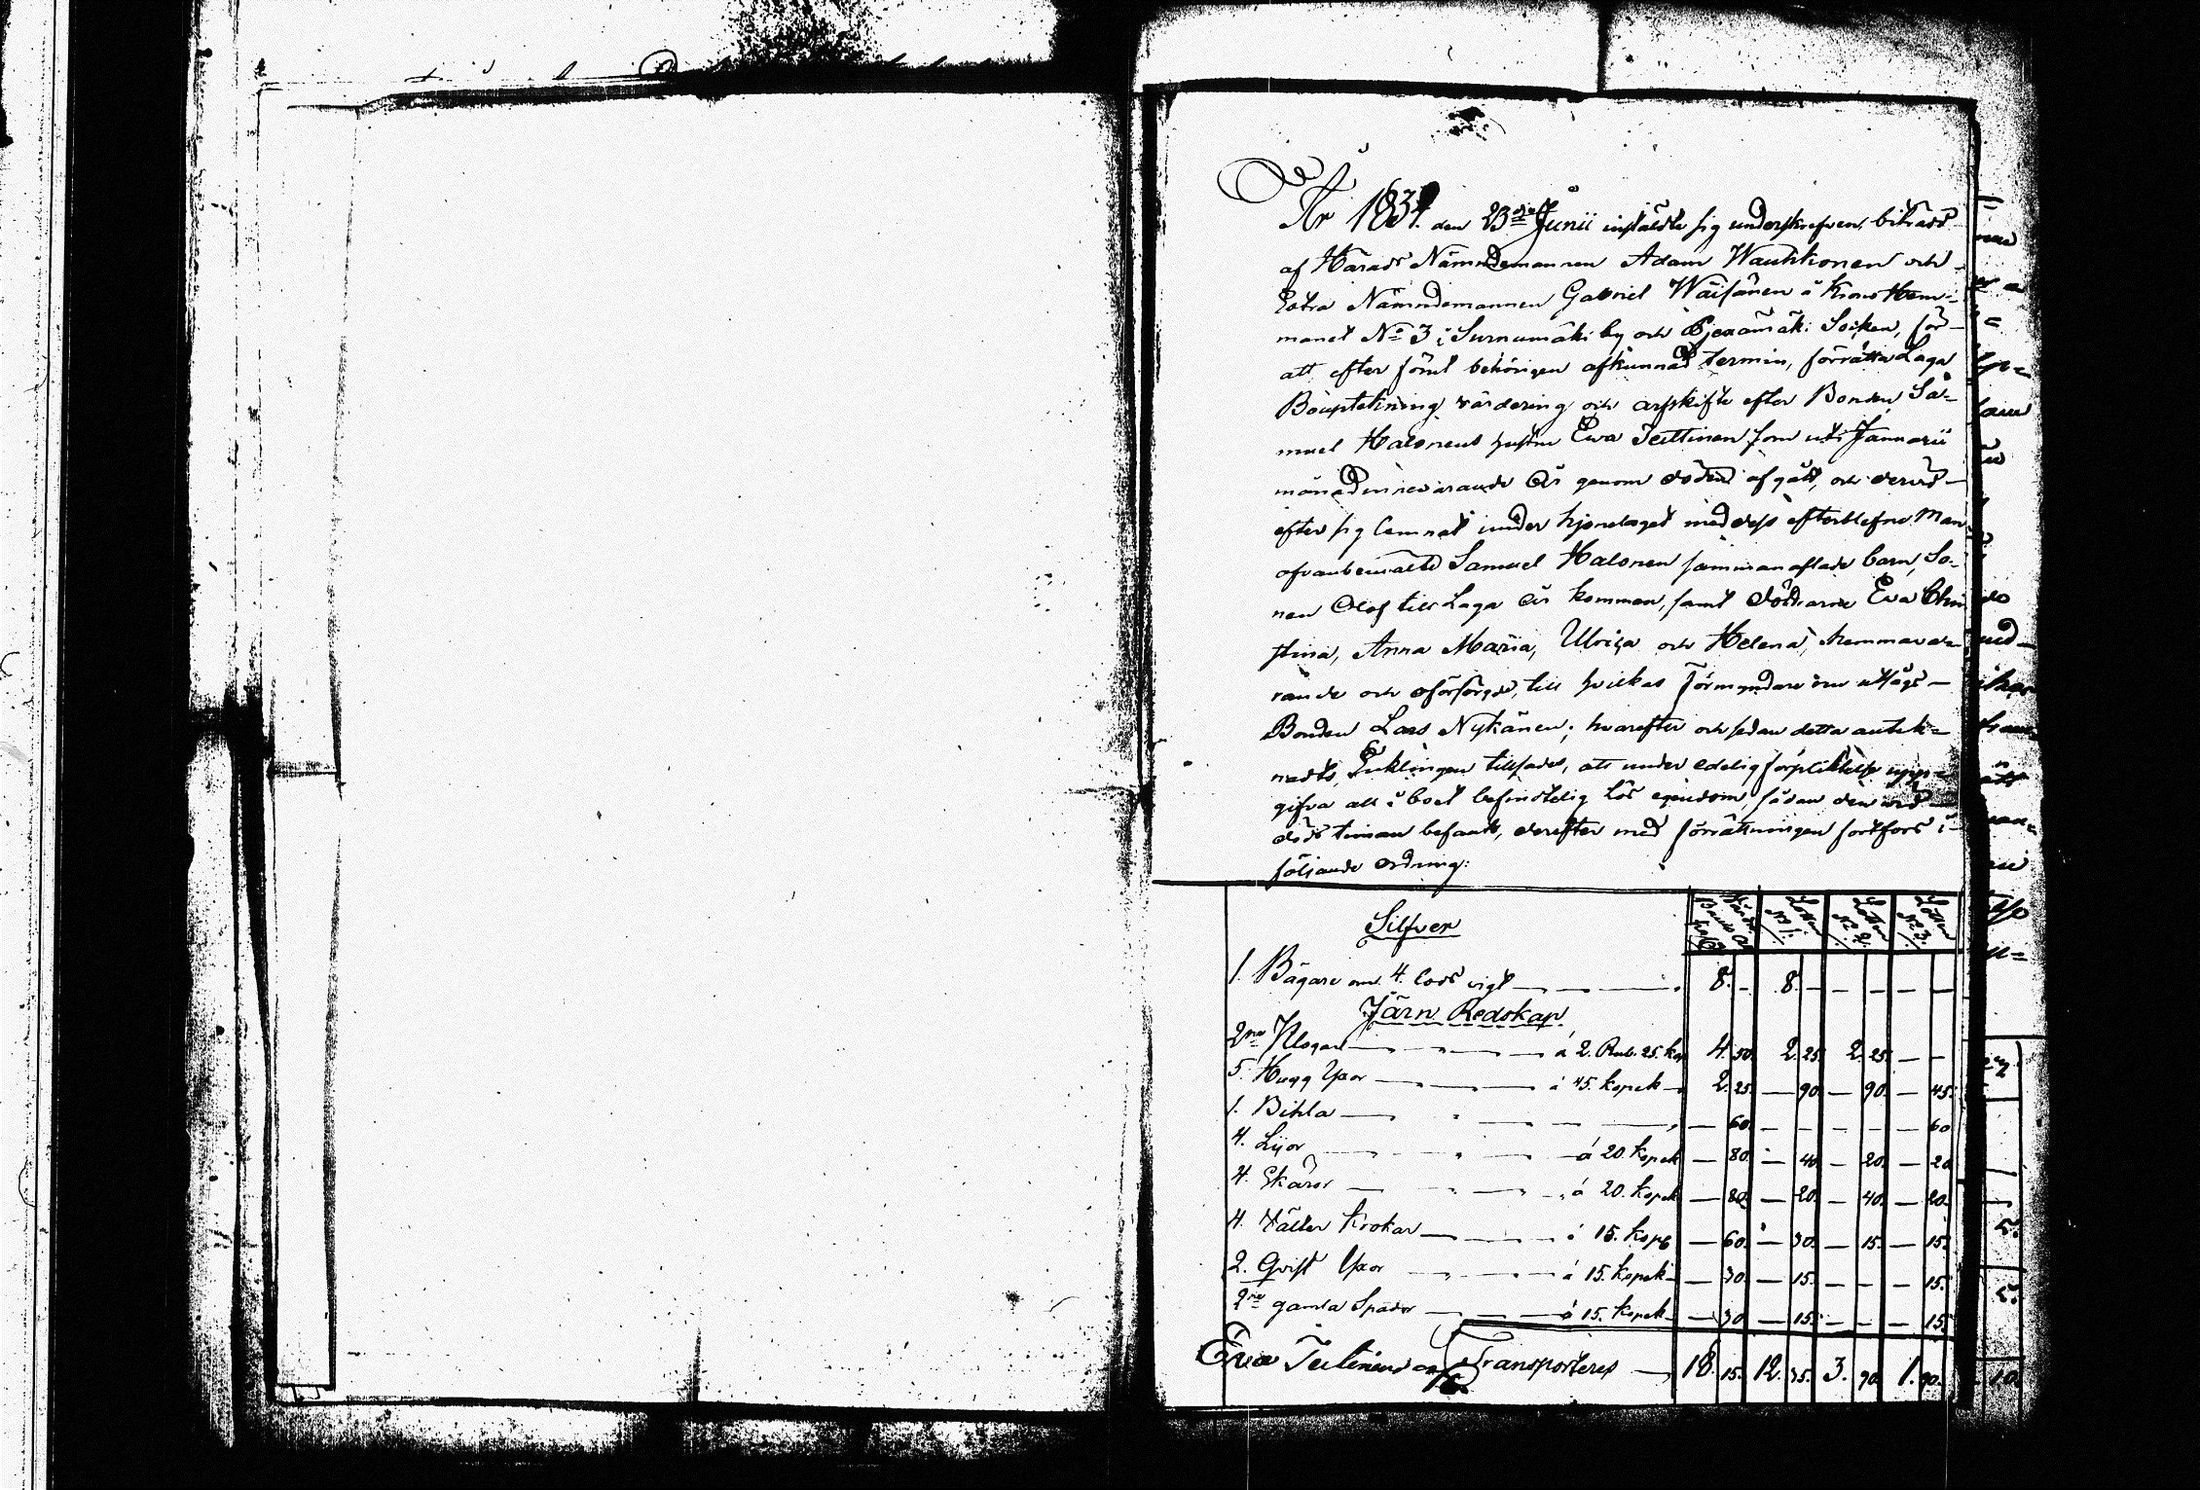 År 1834. den 23dje Junii instälde sig underskrefven, biträdd
af Härads Nämndemannen Adam Wauhkonen och
Extra Nämndemannen Gabriel Wäisänen å Krono Hem-
manet No 3 i Surnumäki by och Pjexämäki Socken, för
att efter förut behörigen afkunnad termin, förrätta Laga
Bouptekning värdering och arfskifte efter Bonden Sa-
muel Halonens hustru Ewa Teittinen som uti Januarii
månad innevarande år genom döden afgått, och dervid
efter sig lemnat under hjonelaget med dess efterblefne Man
ofvanbemälte Samuel Halonen sammanaflade barn, So-
nen Olof till Laga år kommen, samt döttrarne Eva Chri
stina, Anna Maria, Ulrica och Helena, hemmava-
rande och oförsörgde, till hvilkas Förmyndare utsågs
Bonden Lars Nykänen; hvarefter och sedan detta antek-
nadts, Enklingen tillsades, att under edelig förpliktelse upp-
gifva all i boet befindtelig lös egendom, sådan den vid
döds timan befants, derefter med förrättningen fortfors i
följande ordning:
Silfver
Lotten No 1. Lotten No 2. Lotten No 3.
1. Bägare om 4. lods vigt 8. - 8. - - - - -
Järn Redskap
2ne Plogar á 2. Rub. 25. kop 4. 50. 2. 25. 2. 25. - -
5. Hugg Yxor á 45. kopek 2. 25. - 90. - 90. - 45.
1. Bihla - 60. - - - - - 60
4. Lijor á 20. kopek - 80. - 40. - 20. - 20
4. Skäror á 20. kopek - 80. - 20. - 40. - 20.
4. Fäller Krokar á 15. kopek - 60. - 30. - 15. - 15.
2. Qvist Yxor á 15. kopek - 30. - 15. - - - 15.
2ne gamla Spador á 15. kopek - 30 - 15. - - - 15
Transporteres 18. 15. 12. 35. 3. 90. 1. 90.